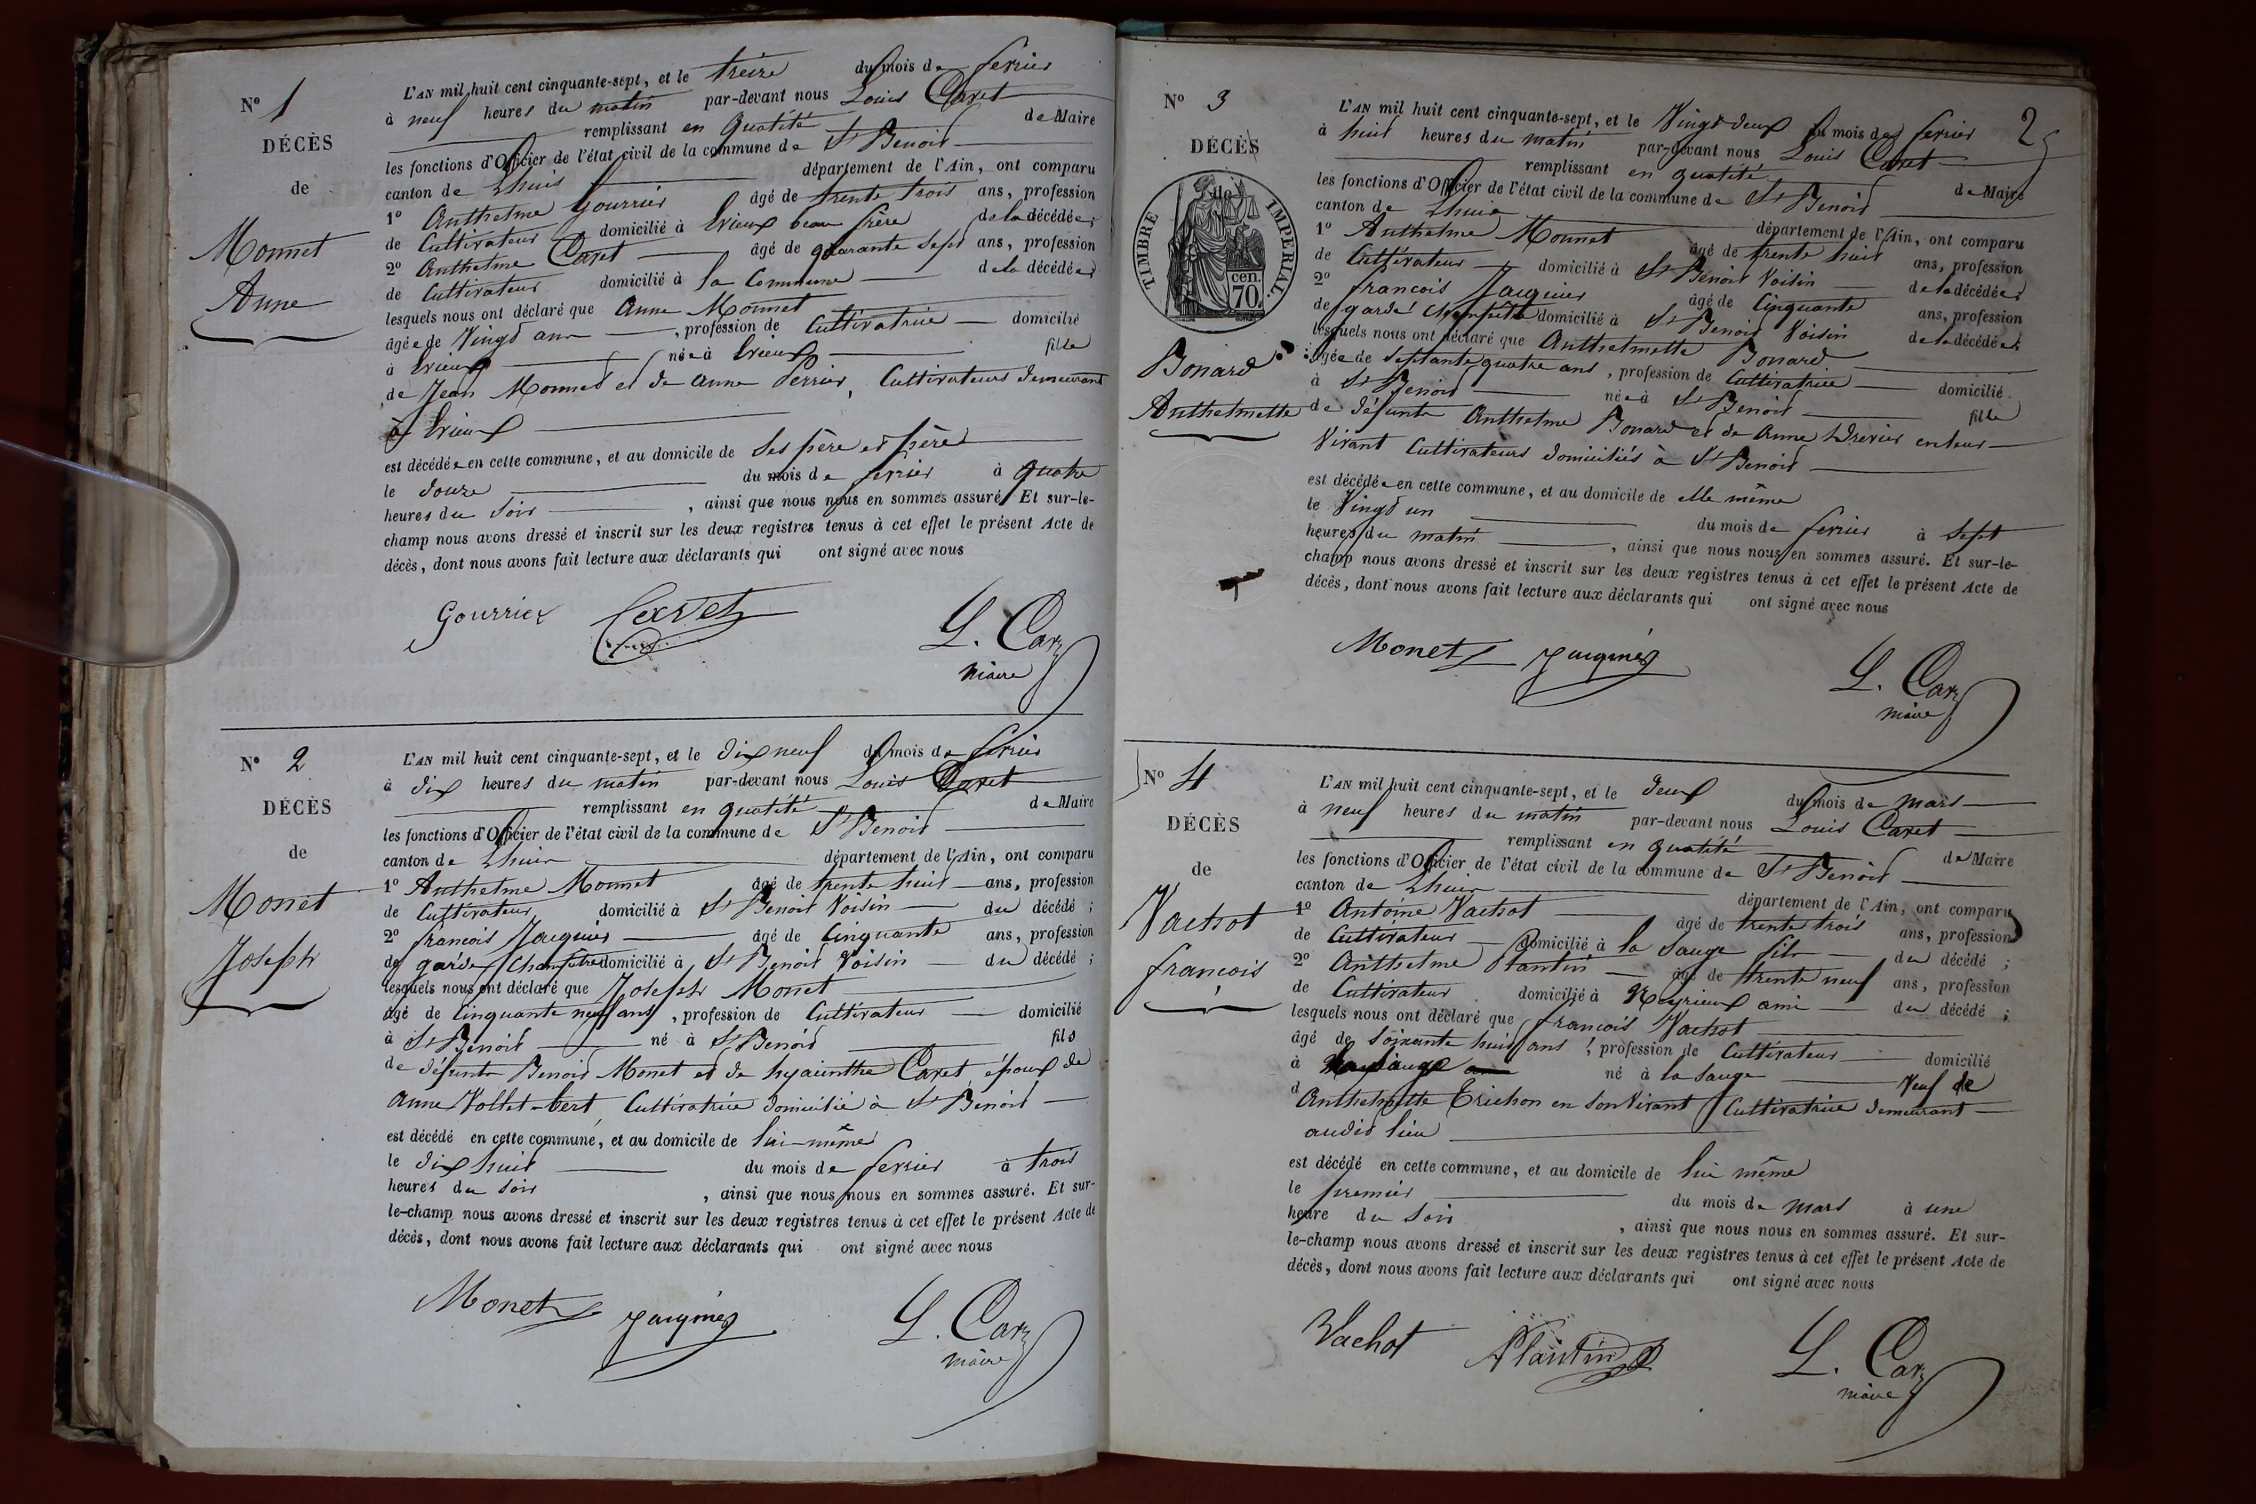 N° 1
DÉCÈS
de
Monnet
Anne
L'AN mil huit cent cinquante-sept, et le treize du mois de fevrier
à neuf heures du matin par-devant nous Louis Caret
remplissant en qualité de Maire
les fonctions d'Officier de l'état civil de la commune de St Benoit
canton de Lhuis département de l'Ain, ont comparu
1° Anthelme Gourrier âgé de trente trois ans, profession
de Cultivateur domicilié à Evieux beau frère de la décédée;
2° Anthelme Caret âgé de quarante sept ans, profession
de Cultivateur domicilié à la Commune de la décédée
lesquels nous ont déclaré que Anne Monnet
âgée de Vingt ans, profession de Cultivatrice domicilié
à Evieux née à Evieux fille
de Jean Monnet et de Anne Perrier, Cultivateurs demeurant
à Evieux
est décédée en cette commune, et au domicile de ses père et père
le douze du mois de fevrier à quatre
heures du soir, ainsi que nous nous en sommes assuré. Et sur-le-
champ nous avons dressé et inscrit sur les deux registres tenus à cet effet le présent Acte de
décès, dont nous avons fait lecture aux déclarants qui ont signé avec nous
Gourrier Carret L. Caret
maire
N° 2
DÉCÈS
de
Monet
Joseph
L'AN mil huit cent cinquante-sept, et le dix neuf du mois de fevrier
à dix heures du matin par-devant nous Louis Caret
remplissant en qualité de Maire
les fonctions d'Officier de l'état civil de la commune de St Benoit
canton de Lhuis département de l'Ain, ont comparu
1° Anthelme Monnet âgé de trente huit ans, profession
de Cultivateur domicilié à St Benoit Voisin du décédé;
2° francois Jauquier âgé de Cinquante ans, profession
de garde Champêtre domicilié à St Benoit Voisin du décédé;
lesquels nous ont déclaré que Joseph Monet
âgé de Cinquante neuf ans, profession de Cultivateur domicilié
à St Benoit né à St Benoit fils
de défunts Benoit Monet et de hyacinthe Caret, époux de
Anne Vollet-bert Cultivatrice domiciliée à St Benoit
est décédé en cette commune, et au domicile de lui-même
le dix huit du mois de fevrier à trois
heures du soir, ainsi que nous nous en sommes assuré. Et sur-
le-champ nous avons dressé et inscrit sur les deux registres tenus à cet effet le présent Acte de
décès, dont nous avons fait lecture aux déclarants qui ont signé avec nous
Monet L. Caret
maire
2
N° 3
DÉCÈS
de
TIMBRE IMPERIAL.
70 cen.
Bonard
Anthelmette
L'AN mil huit cent cinquante-sept, et le Vingt deux du mois de fevrier
à huit heures du matin par-devant nous Louis Caret
remplissant en qualité de Maire
les fonctions d'Officier de l'état civil de la commune de St Benoit
canton de Lhuis département de l'Ain, ont comparu
1° Anthelme Monnet âgé de trente huit ans, profession
de Cultivateur domicilié à St Benoit Voisin de la décédée
2° francois Jauquier âgé de Cinquante ans, profession
de garde Champêtre domicilié à St Benoit Voisin de la décédée;
lesquels nous ont déclaré que Anthelmette Bonard
âgée de septante quatre ans, profession de Cultivatrice domicilié
à St Benoit née à St Benoit fille
de défunts Anthelme Bonard et de Anne Drevier en leur
Vivant Cultivateurs domiciliés à St Benoit
est décédée en cette commune, et au domicile de elle même
le Vingt un du mois de fevrier à sept
heures du matin, ainsi que nous nous en sommes assuré. Et sur-le-
champ nous avons dressé et inscrit sur les deux registres tenus à cet effet le présent Acte de
décès, dont nous avons fait lecture aux déclarants qui ont signé avec nous
Monet L. Caret
maire
N° 4
DÉCÈS
de
Vachot
francois
L'AN mil huit cent cinquante-sept, et le deux du mois de mars
à neuf heures du matin par-devant nous Louis Caret
remplissant en qualité de Maire
les fonctions d'Officier de l'état civil de la commune de St Benoit
canton de Lhuis département de l'Ain, ont comparu
1° Antoine Vachot âgé de trente trois ans, profession
de Cultivateur domicilié à la Sauge fils du décédé;
2° Anthelme Plantin âgé de trente neuf ans, profession
de Cultivateur domicilié à Meyrieux ami du décédé;
lesquels nous ont déclaré que francois Vachot
âgé de soixante huit ans, profession de Cultivateur domicilié
à la Sauge né à la Sauge Veuf de
d'Anthelmette Erichon en son Vivant Cultivatrice demeurant
audit lieu
est décédé en cette commune, et au domicile de lui même
le premier du mois de mars à une
heure du soir, ainsi que nous nous en sommes assuré. Et sur-
le-champ nous avons dressé et inscrit sur les deux registres tenus à cet effet le présent Acte de
décès, dont nous avons fait lecture aux déclarants qui ont signé avec nous
Vachot Plantin L. Caret
maire